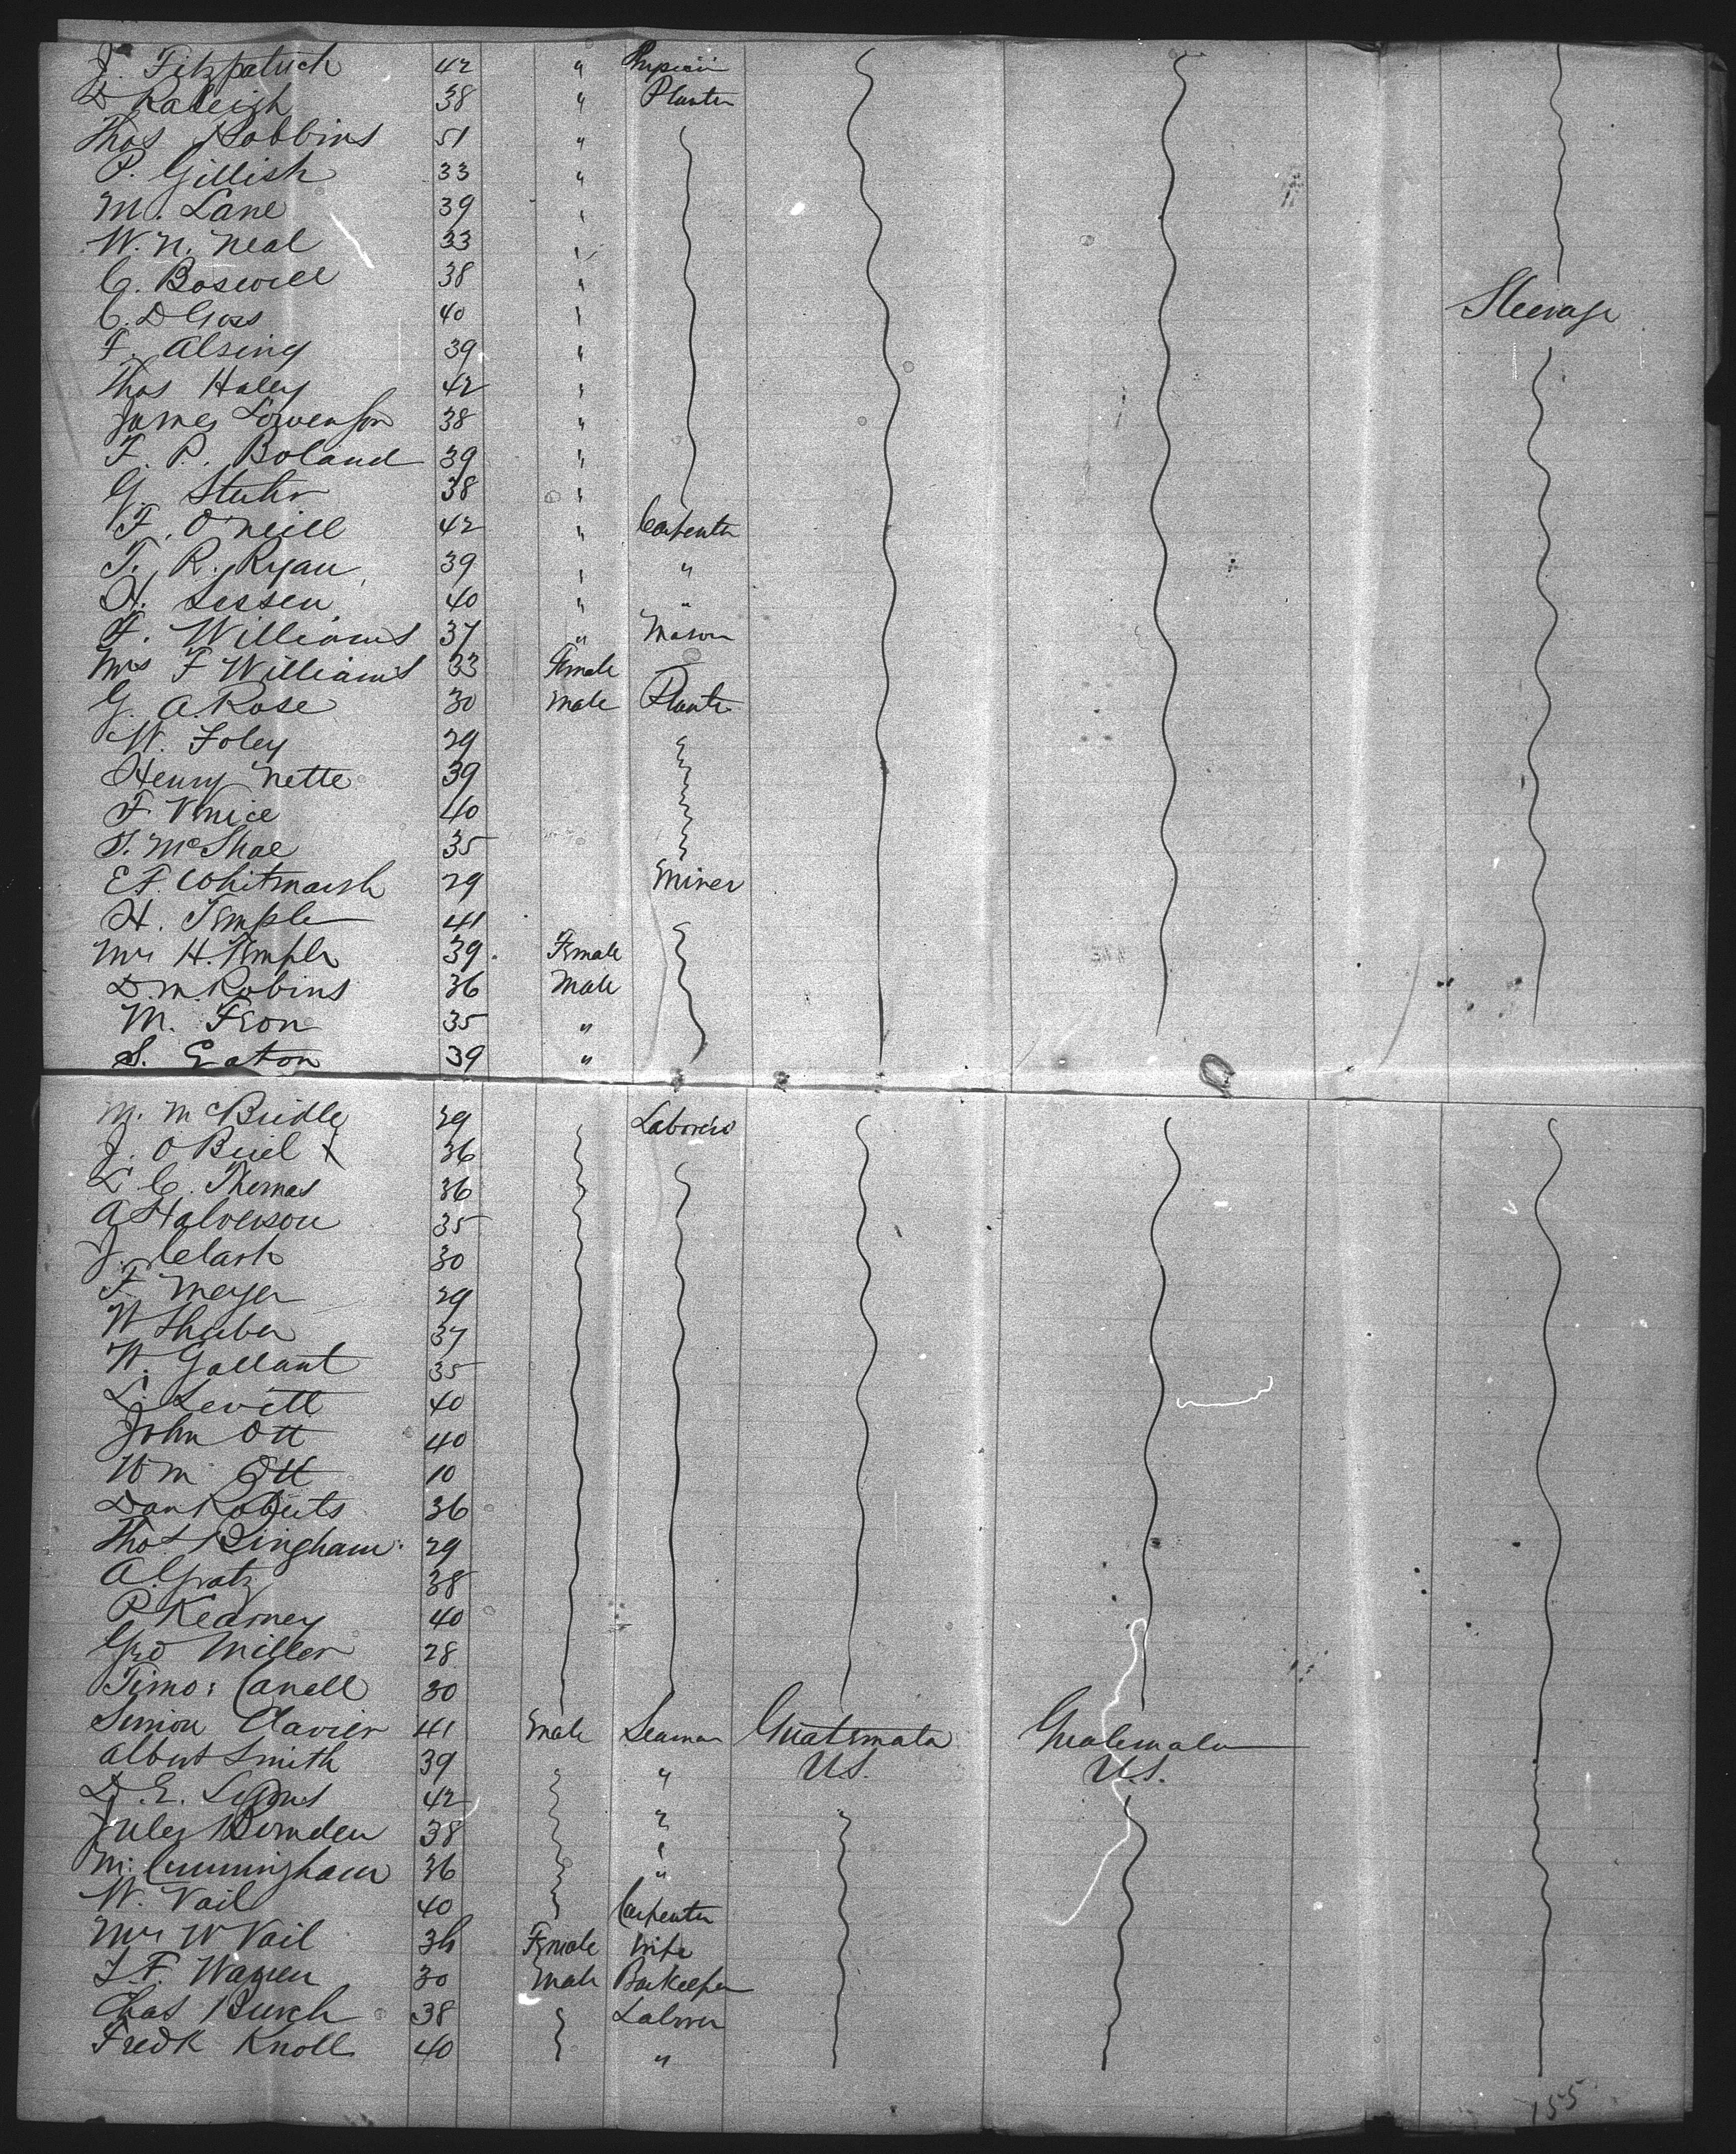 J. Fitzpatrick 42 "
D Raleigh 38 " Planter
Thos Robbins 51 "
P. Gillish 33 "
M. Lane 39 "
W. N. Neal 33 "
C. Boswell 38 "
C. D Goss 40 " Steerage
F. Alsing 39 "
Thos Haley 42 "
James Lowenson 38 "
F. P. Boland 39 "
G. Stuhr 38 "
F. O'Neill 42 " Carpenter
T. R. Ryan 39 " "
H. Lessen 40 " "
F. Williams 37 " Mason
Mrs F Williams 33 Female
G. A. Rose 30 Male Planter
W. Foley 29
Henry Nette 39
F. 40
T. McShae 35
E F. Whitmarsh 29 Miner
H. Temple 41
Mrs H. Temple 39 Female
D. M. Robins 36 Male
M. Fron 35 "
S. Eaton 39 "
M. McBridle 29 Laborers
J. O Briel X 36
L C. Thomas 36
A Halverson 35
J. Clark 30
F Meyer 29
W Shuber 37
W. Gallant 35
L. Levett 40
John Ott 40
Wm Ott 10
Dan Roberts 36
Thos Bingham 29
A. Gratz 38
P Kearney 40
Geo Miller 28
Timo: Canell 30
Simion Clavier 41 Male Seaman Guatemala Guatemala
Albert Smith 39 " U.S. U.S.
D. E. 42 "
Jules 38 "
M. Cunningham 36 "
W. Vail 40 Carpenter
Mrs W Vail 36 Female Wife
T. F. Warren 30 Male Barkeeper
Chas Burch 38 Laborer
Fredk Knoll 40 "
155